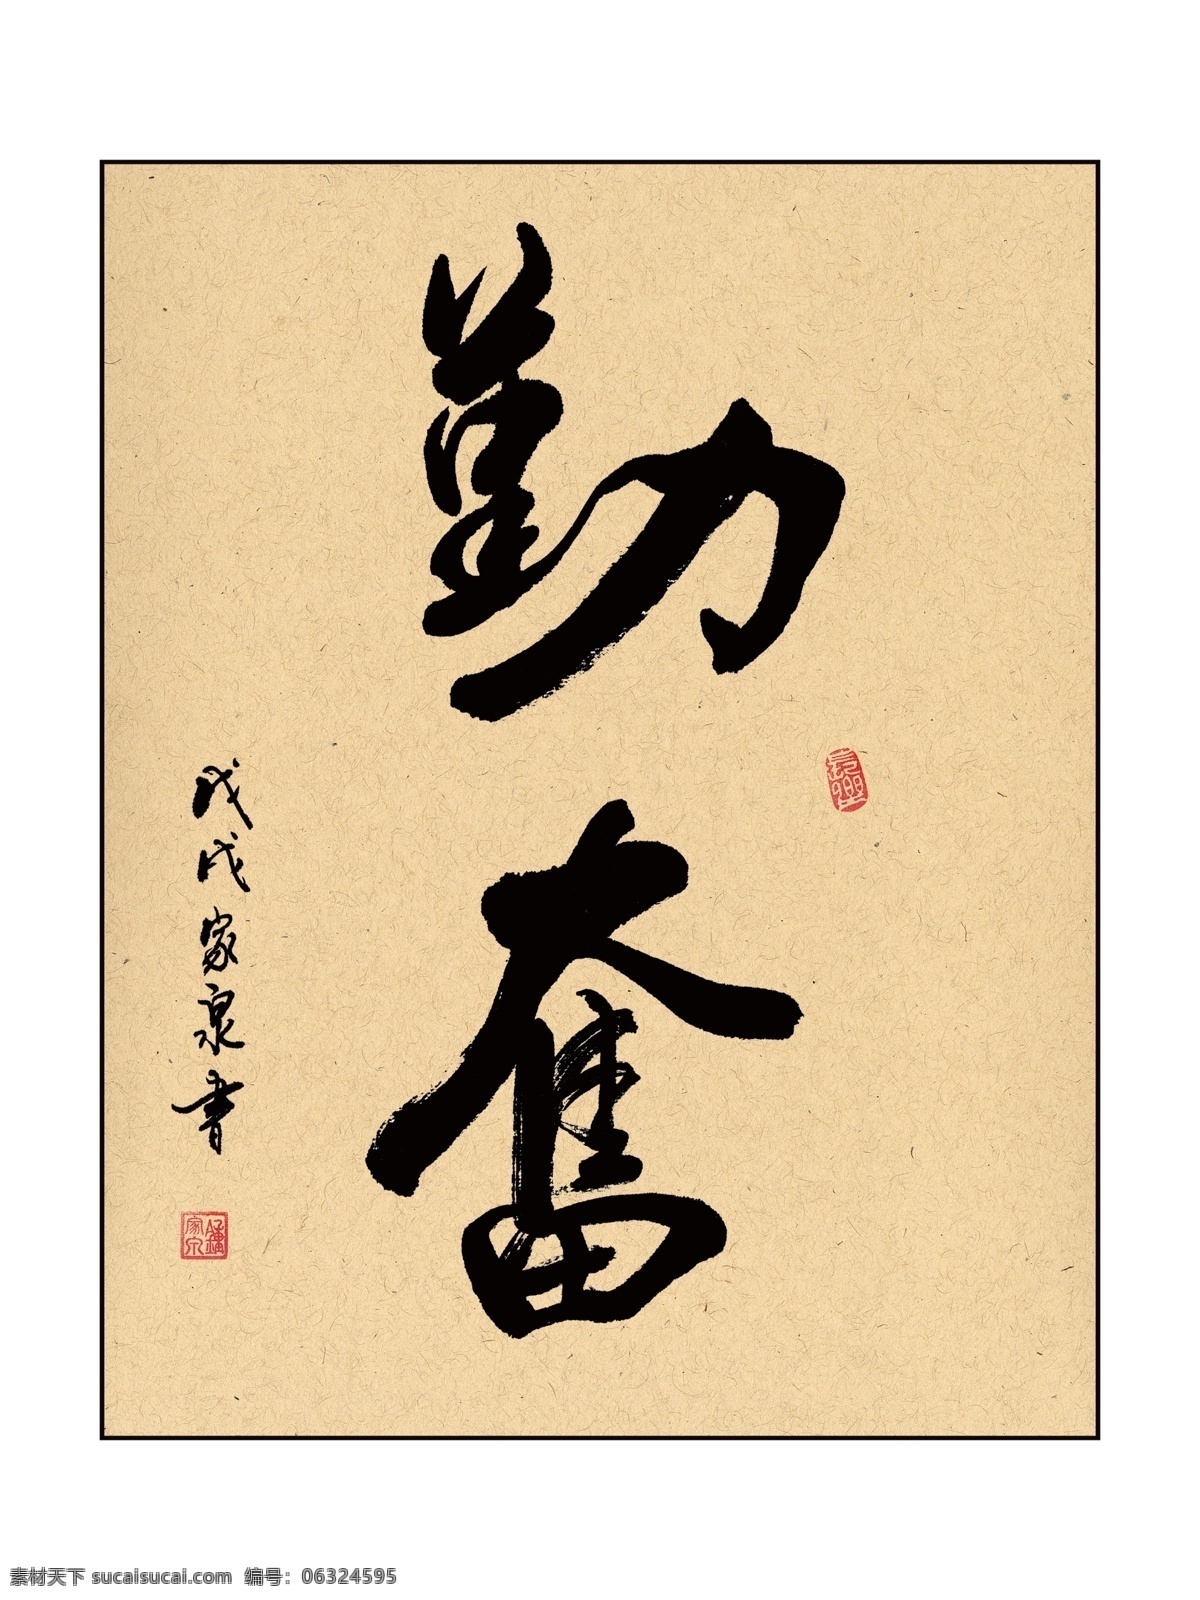 勤奮
戊戌家泉書
鍾家泉
素材天下 sucaisucai.com 编号：06324595